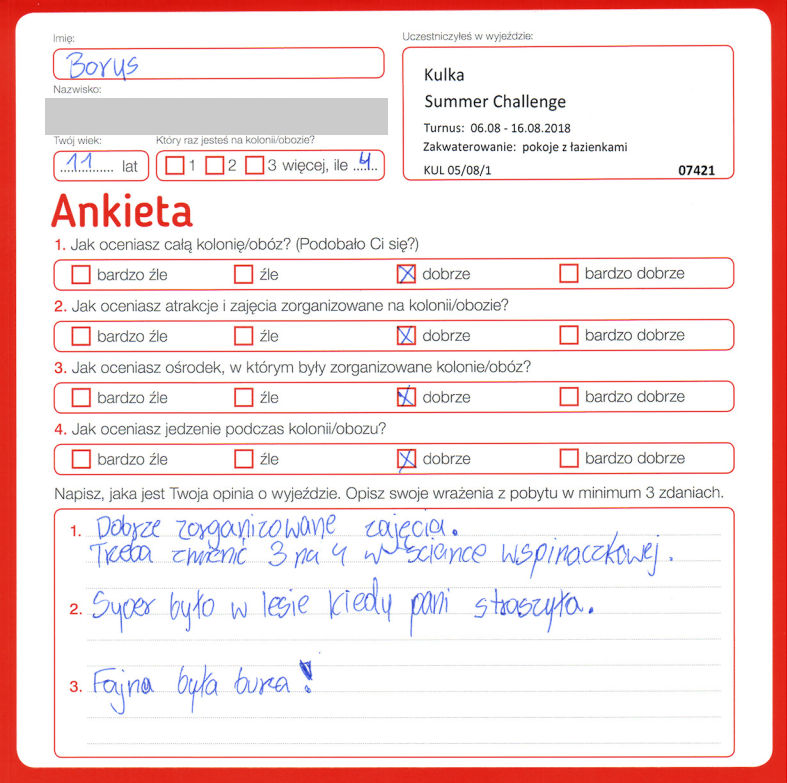 Imię:
Borys
Nazwisko:
Twój wiek:
11 lat
Który raz jesteś na kolonii/obozie?
1 2 3 więcej, ile 4
Uczestniczyłeś w wyjeździe:
Kulka
Summer Challenge
Turnus: 06.08 - 16.08.2018
Zakwaterowanie: pokoje z łazienkami
KUL 05/08/1 07421
Ankieta
1. Jak oceniasz całą kolonię/obóz? (Podobało Ci się?)
bardzo źle źle dobrze bardzo dobrze
2. Jak oceniasz atrakcje i zajęcia zorganizowane na kolonii/obozie?
bardzo źle źle dobrze bardzo dobrze
3. Jak oceniasz ośrodek, w którym były zorganizowane kolonie/obóz?
bardzo źle źle dobrze bardzo dobrze
4. Jak oceniasz jedzenie podczas kolonii/obozu?
bardzo źle źle dobrze bardzo dobrze
Napisz, jaka jest Twoja opinia o wyjeździe. Opisz swoje wrażenia z pobytu w minimum 3 zdaniach.
1. Dobrze zorganizowane zajęcia.
Trzeba zmienić 3 na 4 w ściance wspinaczkowej.
2. Super było w lesie kiedy pani straszyła.
3. Fajna była burza!